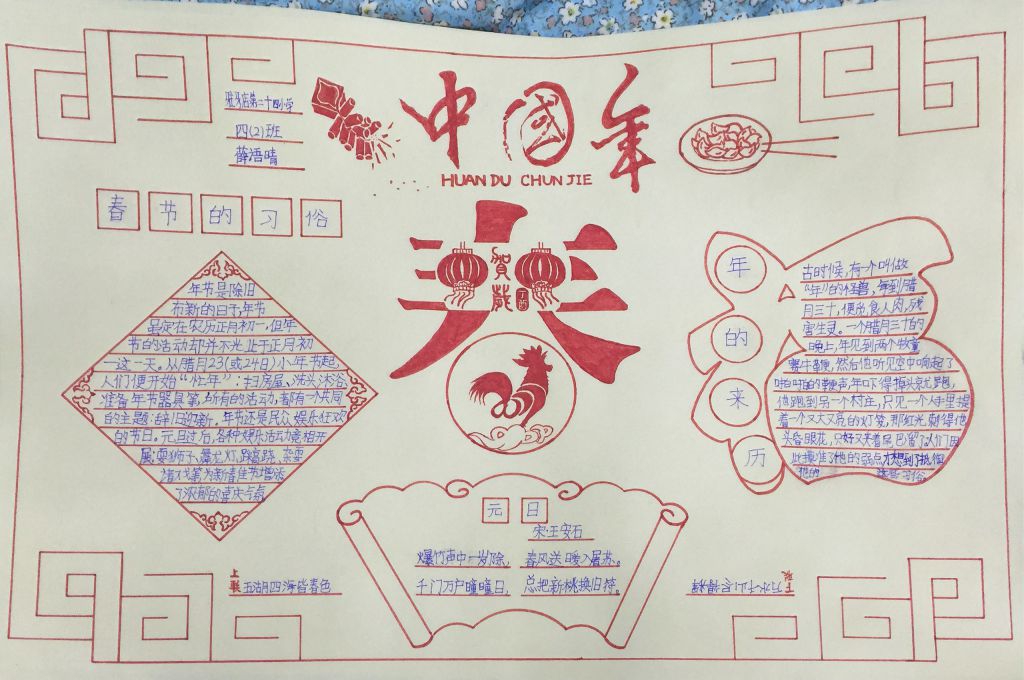 驻马店第二十四小学
四(2)班
薛语晴
中国年
HUAN DU CHUN JIE
春节的习俗
賀歲
丁酉
年节是除旧
布新的日子,年节
虽定在农历正月初一,但年
节的活动却并不光止于正月初
一这一天。从腊月23(或24日)小年节起,
人们便开始“忙年”:扫房屋、洗头沐浴、
准备年节器具等,所有的活动,都有一个共同
的主题:辞旧迎新。年节还是民众娱乐狂欢
的节日。元旦过后,各种娱乐活动竞相开
展:耍狮子、舞龙灯、踩高跷、杂耍
诸戏等为新春佳节增添
了浓郁的喜庆气氛
年的来历
古时候,有一个叫做
“年”的怪兽,每到腊
月三十,便
食人肉,残
害生灵。一个腊月三十的
晚上,年见到两个牧童
牛鞭,然后他听见空中响起了
啪啪的鞭声,年吓得掉头就跑,
他跑到另一个村庄,只见一个人手里提
着一个又大又亮的灯笼,那红光刺得他
头昏眼花,只好夹着尾巴溜了。人们由
此摸准了他的弱点,才想到了
这些习俗。
元日
宋:王安石
爆竹声中一岁除,春风送暖入屠苏。
千门万户曈曈日,总把新桃换旧符。
上联
五湖四海皆春色
下联
万水千山